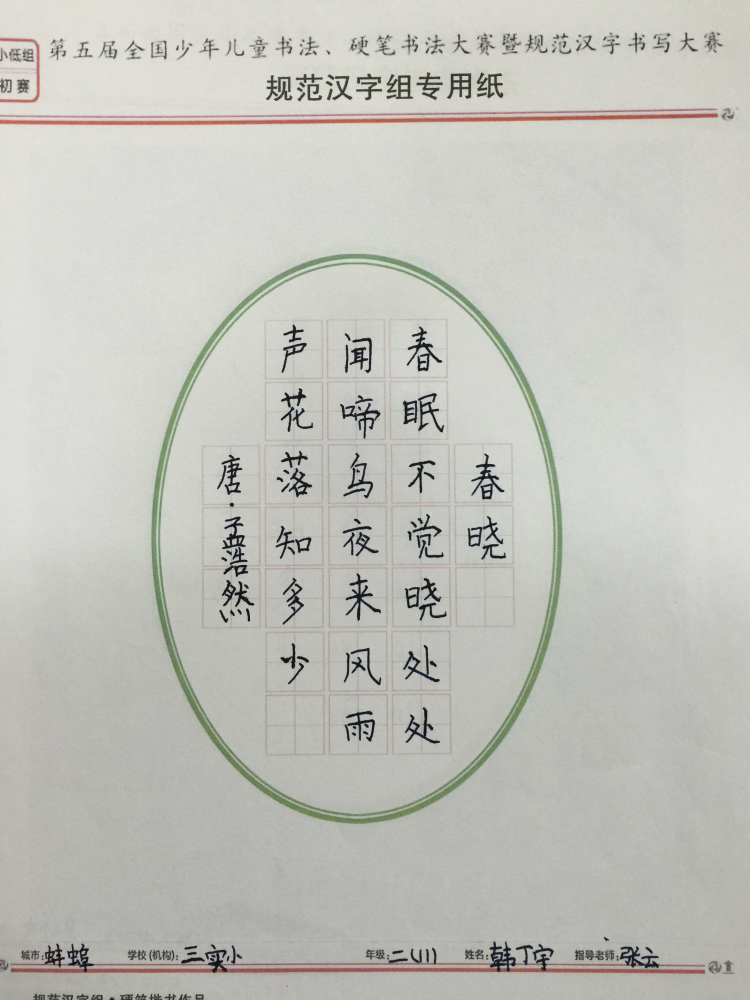 小低组
初赛
第五届全国少年儿童书法、硬笔书法大赛暨规范汉字书写大赛
规范汉字组专用纸
春晓
春眠不觉晓处处
闻啼鸟夜来风雨
声花落知多少
唐·孟浩然
城市:蚌埠 学校(机构):三实小 年级:二(11) 姓名:韩丁宇 指导老师:张云
规范汉字组·硬笔楷书作品